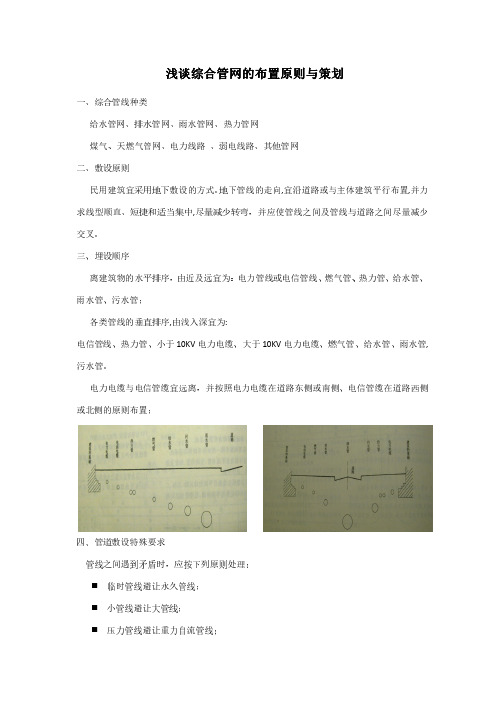 浅谈综合管网的布置原则与策划
一、综合管线种类
给水管网、排水管网、雨水管网、热力管网
煤气、天燃气管网、电力线路 、弱电线路、其他管网
二、敷设原则
民用建筑宜采用地下敷设的方式。地下管线的走向,宜沿道路或与主体建筑平行布置,并力
求线型顺直、短捷和适当集中,尽量减少转弯，并应使管线之间及管线与道路之间尽量减少
交叉。
三、埋设顺序
离建筑物的水平排序，由近及远宜为：电力管线或电信管线、燃气管、热力管、给水管、
雨水管、污水管；
各类管线的垂直排序,由浅入深宜为:
电信管线、热力管、小于 10KV 电力电缆、大于 10KV 电力电缆、燃气管、给水管、雨水管,
污水管。
电力电缆与电信管缆宜远离，并按照电力电缆在道路东侧或南侧、电信管缆在道路西侧
或北侧的原则布置；
四、管道敷设特殊要求
管线之间遇到矛盾时，应按下列原则处理；
■ 临时管线避让永久管线；
■ 小管线避让大管线；
■ 压力管线避让重力自流管线；